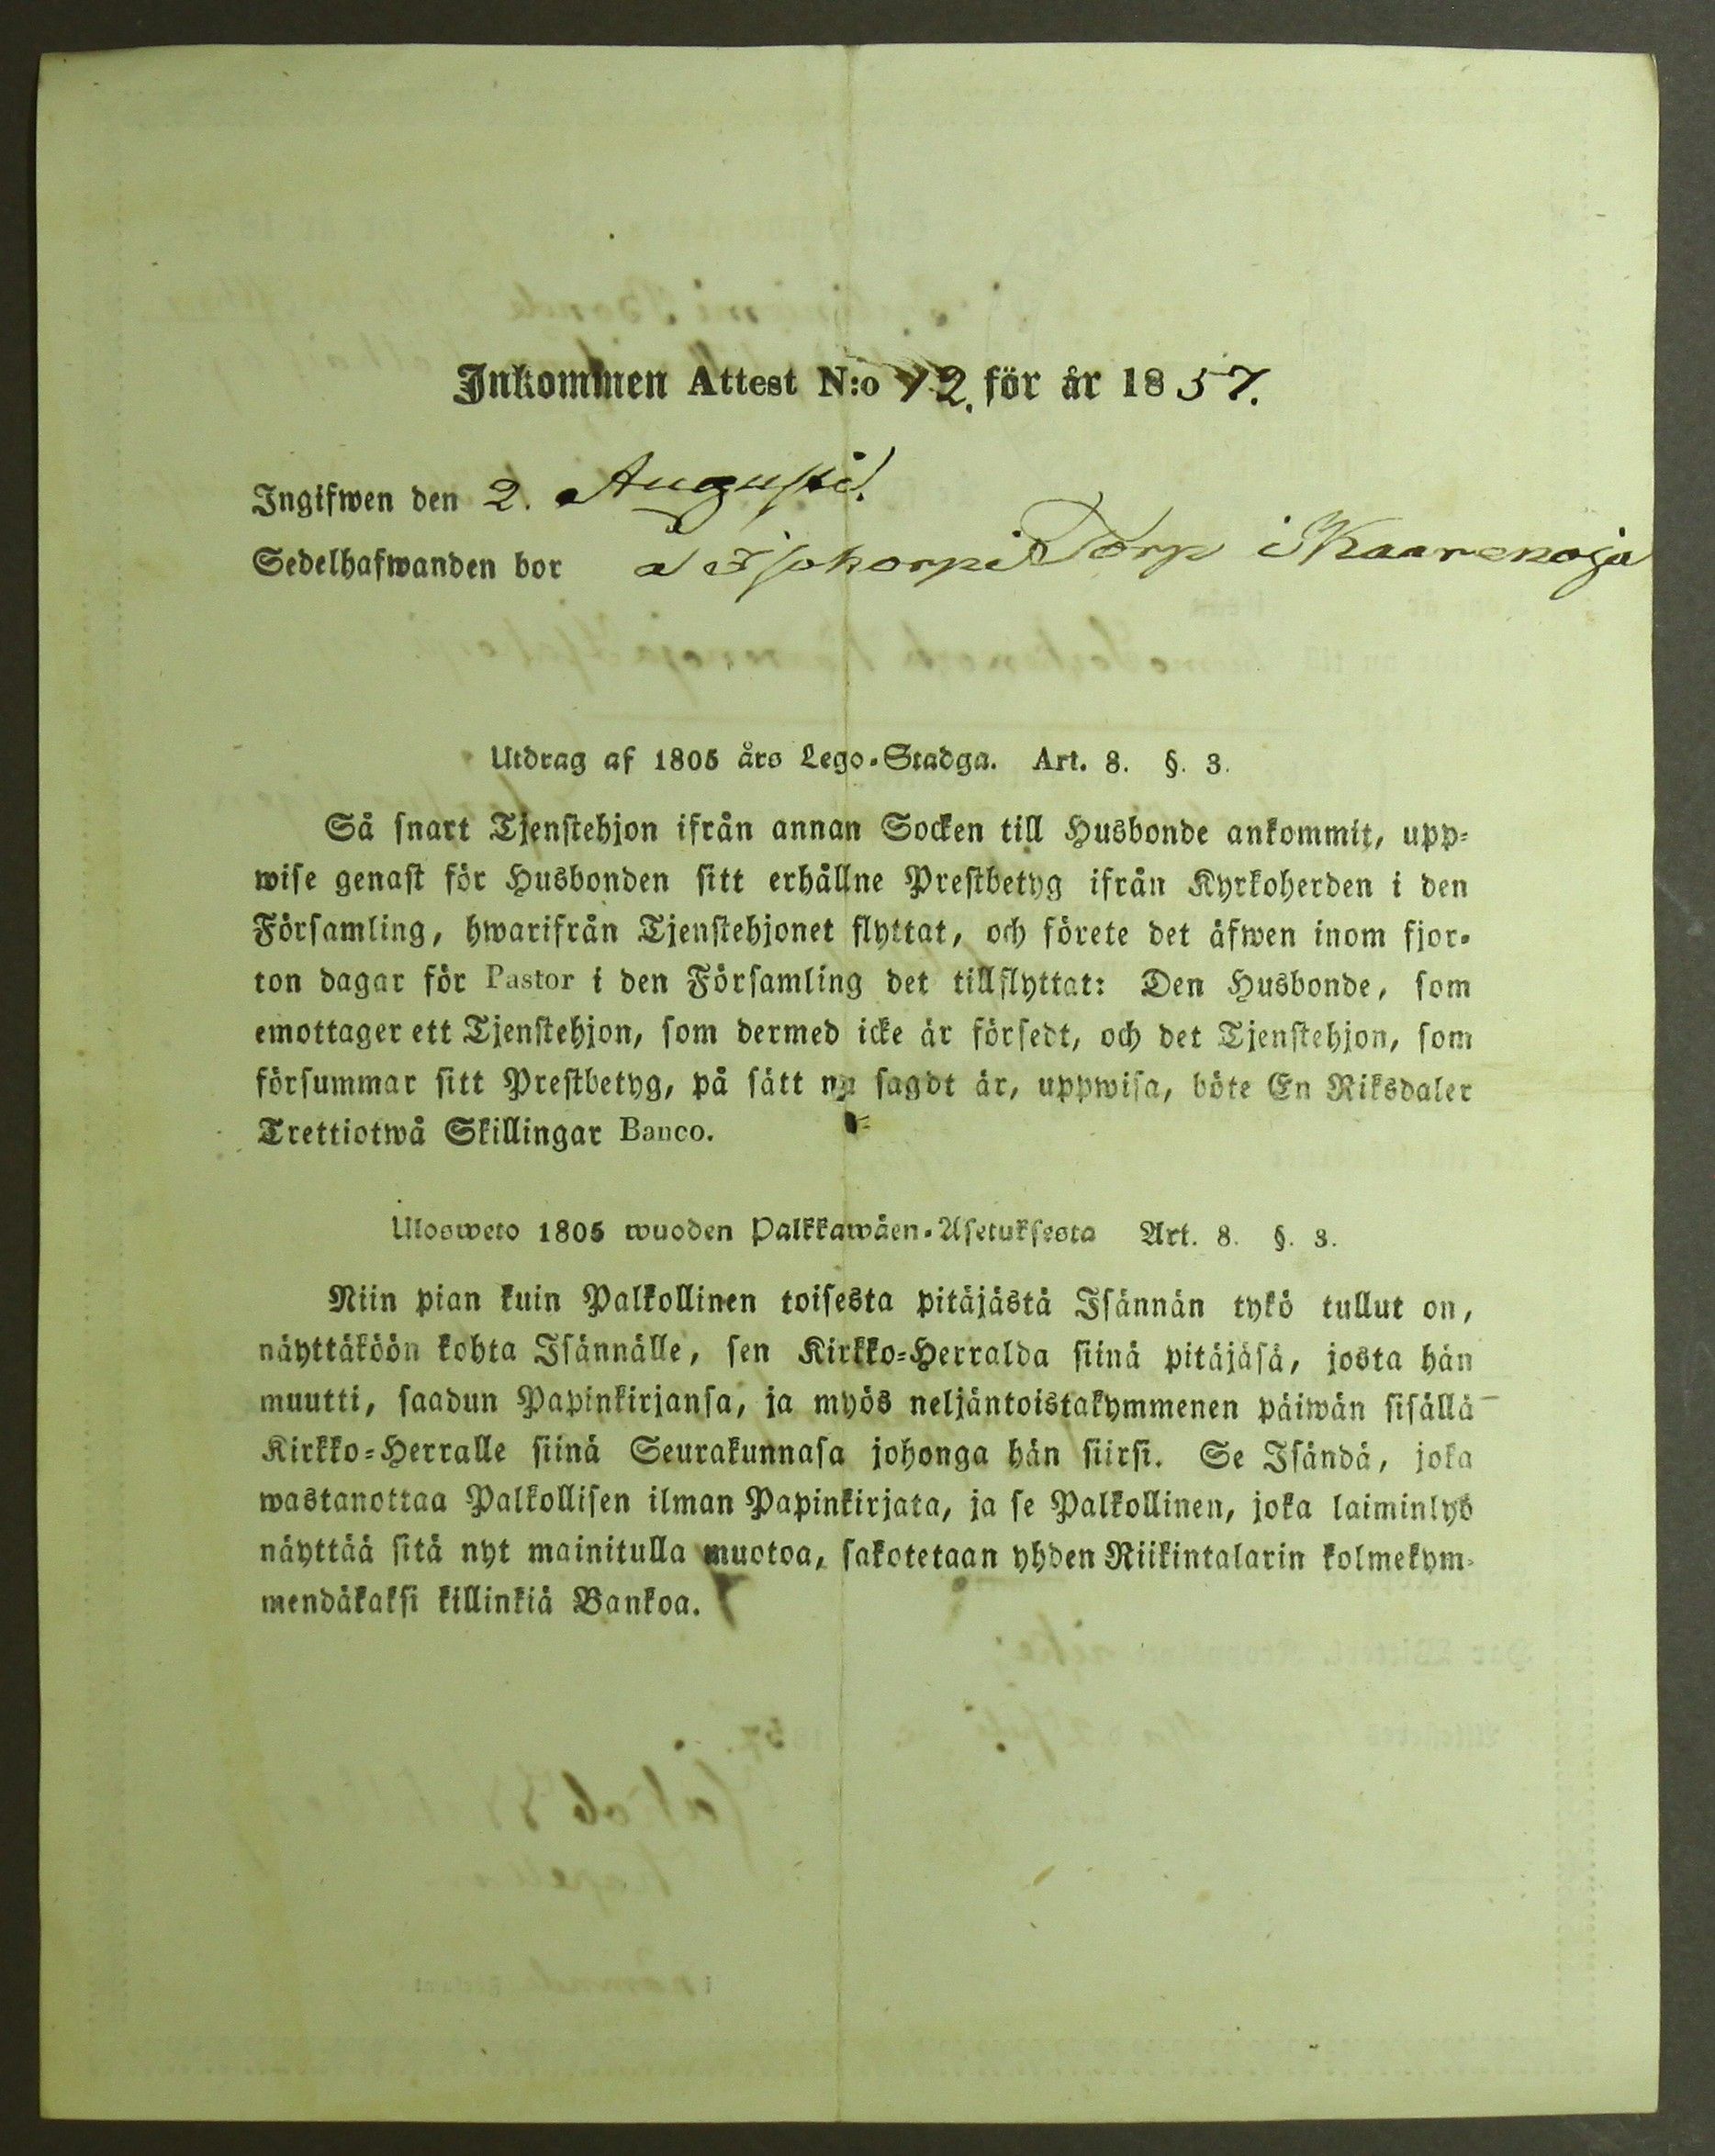 Inkommen Attest N:o 12. för år 1857.
Ingifwen den 2. Augusti.
Sedelhafwanden bor å Isokorpi Torp i Kaarenoja
Utdrag af 1805 års Lego-Stadga. Art. 8. §. 3.
Så snart Tjenstehjon ifrån annan Socken till Husbonde ankommit, upp-
wise genast för Husbonden sitt erhållne Prestbetyg ifrån Kyrkoherden i den
Församling, hwarifrån Tjenstehjonet flyttat, och förete det äfwen inom fjor-
ton dagar för Pastor i den Församling det tillflyttat: Den Husbonde, som
emottager ett Tjenstehjon, som dermed icke är försedt, och det Tjenstehjon, som
försummar sitt Prestbetyg, på sätt nu sagdt är, uppwisa, böte En Riksdaler
Trettiotwå Skillingar Banco.
Ulosweto 1805 wuoden Palkkawäen-Asetuksesta Art. 8. §. 3.
Niin pian kuin Palkollinen toisesta pitäjästä Isännän tykö tullut on,
näyttäköön kohta Isännälle, sen Kirkko-Herralda siinä pitäjäsä, josta hän
muutti, saadun Papinkirjansa, ja myös neljäntoistakymmenen päiwän sisällä
Kirkko-Herralle siinä Seurakunnasa johonga hän siirsi. Se Isändä, joka
wastanottaa Palkollisen ilman Papinkirjata, ja se Palkollinen, joka laiminlyö
näyttää sitä nyt mainitulla muotoa, sakotetaan yhden Riikintalarin kolmekym-
mendäkaksi killinkiä Bankoa.